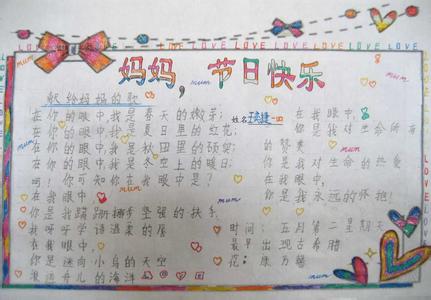 LOVE LOVE LOVE LOVE LOVE LOVE
妈妈，节日快乐
献给妈妈的歌
在你的眼中,我是春天的嫩芽;
在你的眼中,我是夏日里的红花;
在你的眼中,我是秋田里的硕实;
在你的眼中,我是冬空上的暖日;
呵！你可知你在我眼中是?
在我眼中,
你是我蹒跚挪步坚强的扶手
我呀呀学语温柔的
在我眼中,
你是飞向小鸟的天空
儿的海洋
姓名
在我眼中,
你是我对生命所有
的赞美
你是我对生命的热爱
在我眼中,
你是我永远的怀抱!
时间:五月第二星期天
最早出现古希腊
花:康乃馨
mum
mum
mum
mum
mum
mum
mum
LOVE
LOVE